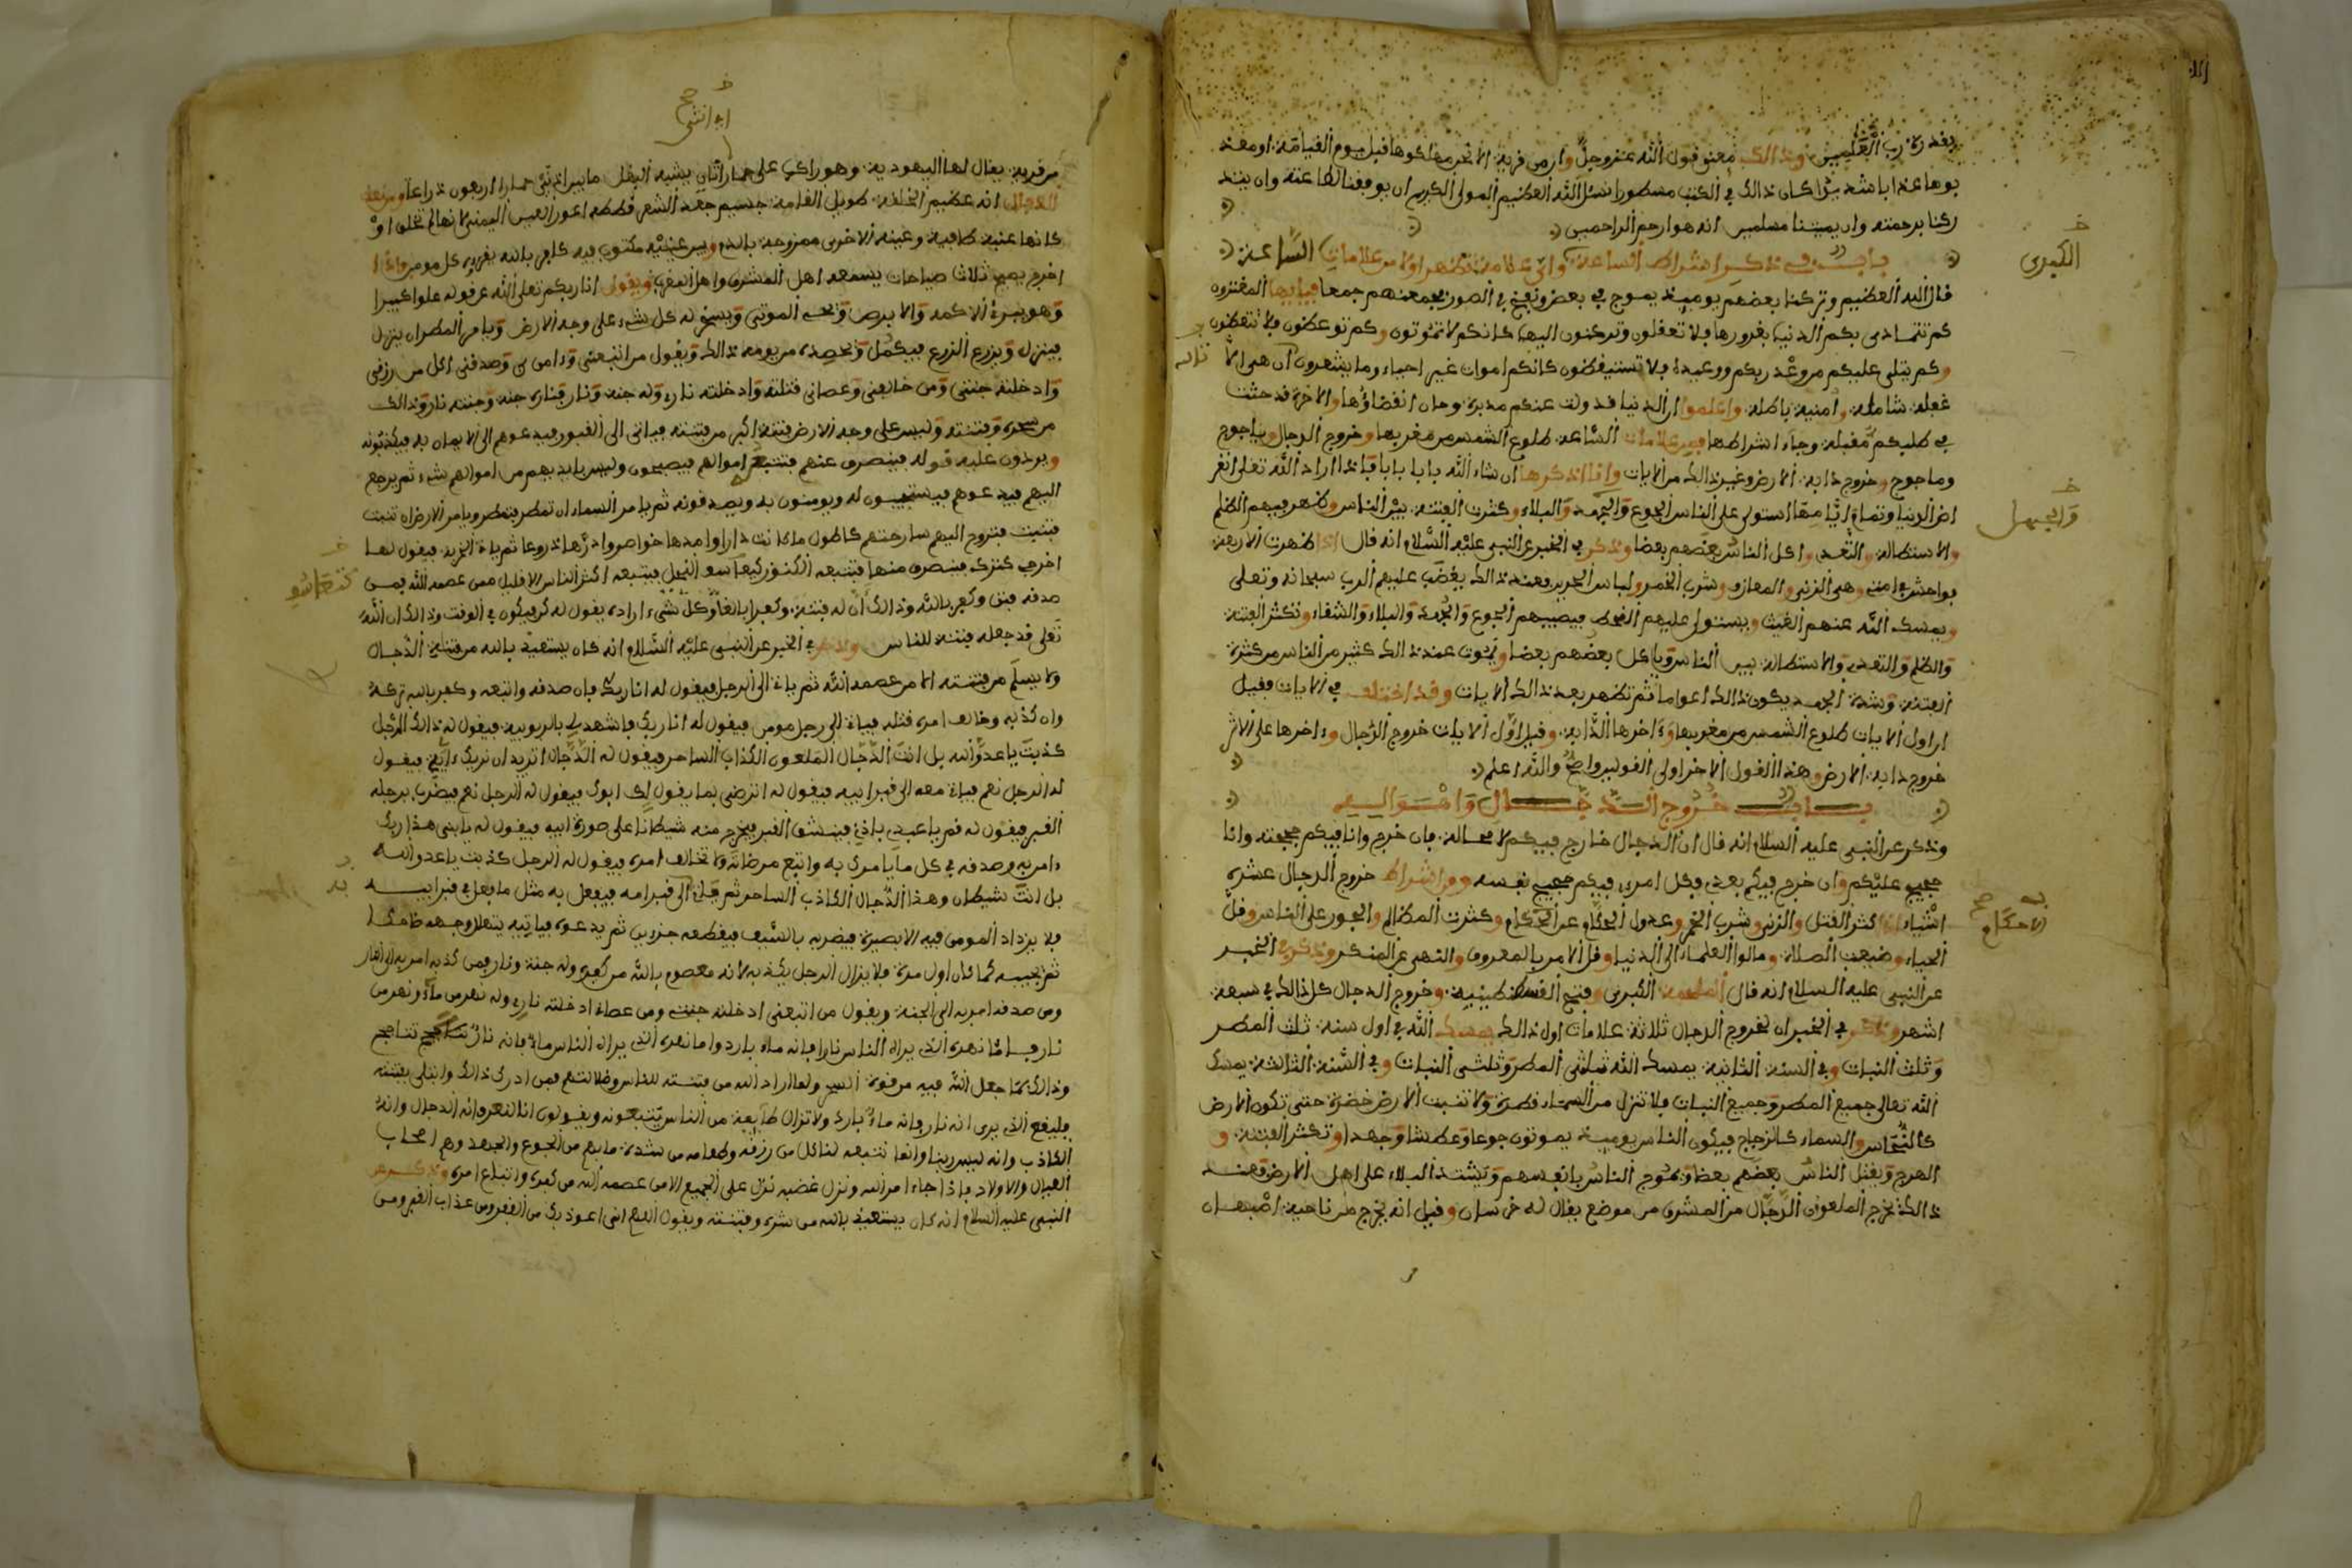 بقدرة رب العلمين وذالك معنى قول الله عز وجل وان من قرية الا نحن مهلكوها قبل يوم القيامة او معذ
بوها عذابا شديدا كان ذالك في الكتب مسطورا نسئل الله العظيم المولى الكريم ان يوفقنا لطاعته وان يتد
ركنا برحمته وان يميتنا مسلمين انه هو ارحم الراحمين
باب في ذكر اشراط الساعة واي علامة تظهر اولا من علامات الساعة
الكبرى
قال الله العظيم وتركنا بعضهم يومئذ يموج في بعض ونفخ في الصور فجمعنهم جمعا فيايها المغترون
كم تتمادى بكم الدنيا بغرورها ولا تعقلون وتركنون اليها كانكم لا تموتون وكم توعظون ولا تتعظون
وكم يتلى عليكم من وعد ربكم ووعيده ولا تستيقظون كانكم اموات غير احياء وما يشعرون ان هي الا
غفلة شاملة وامنية باطلة واعلموا ان الدنيا قد ولت عنكم مدبرة وحان انقضاؤها والاخرة قد حثت
في طلبكم مقبلة وجاء اشراطها فمن علامات الساعة طلوع الشمس من مغربها وخروج الدجال وياجوج
وماجوج وخروج دابة الارض وغير ذالك من الايات وانا اذكرها ان شاء الله بابا بابا فاذا اراد الله تعلى انقر
اض الدنيا وتمام ايامها استولى على الناس الجوع والجهد والبلاء وكثرت الفتنة بين الناس وظهر فيهم الظلم
والجهل
والاستطالة والتعدي واكل الناس بعضهم بعضا وذكر في الخبر عن النبي عليه السلام انه قال اذا ظهرت الاربعة
فواحش في امتي وهي الزنى والمعازف وشرب الخمر ولباس الحرير فعند ذالك يغضب عليهم الرب سبحانه وتعلى
ويمسك الله عنهم الغيث ويستولي عليهم القحط فيصيبهم الجوع والجهد والبلاء والشقاء وتكثر الفتنة
والظلم والتعدي والاستطالة بين الناس وياكل بعضهم بعضا ويموت عند ذالك كثير من الناس من كثرة
الفتنة وشدة الجهد يكون ذالك اعواما ثم تظهر بعد ذالك الايات وقد اختلف في الايات فقيل
ان اول الايات طلوع الشمس من مغربها وءاخرها الدابة وقيل اول الايات خروج الدجال وءاخرها على الاثر
خروج دابة الارض وهذا القول الاخر اولى القولين واصح والله اعلم
باب خروج الدجال واحواله
وذكر عن النبي عليه السلام انه قال ان الدجال خارج فيكم لا محالة فان خرج وانا فيكم حججته وانا
حجيج عليكم وان خرج فيكم بعدي فكل امرئ فيكم حجيج نفسه ومن اشراط خروج الدجال عشرة
اشياء اذا كثر القتل والزنى وشرب الخمر وعدول الحكام عن الحكام وكثرت المظالم والجور على الناس وقل
الاحكام صح
الحياء وضيعت الصلاة ومالوا العلماء الى الدنيا وقل الامر بالمعروف والنهي عن المنكر وذكر في الخبر
عن النبي عليه السلام انه قال الملحمة الكبرى وفتح القسطنطينية وخروج الدجال كل ذالك في سبعة
اشهر وذكر في الخبر ان لخروج الدجال ثلاثة علامات اول ذالك يمسك الله في اول سنة ثلث المطر
وثلث النبات وفي السنة الثانية يمسك الله ثلثي المطر وثلثي النبات وفي السنة الثالثة يمسك
الله تعالى جميع المطر وجميع النبات فلا تنزل من السماء قطرة ولا تنبت الارض خضرة حتى تكون الارض
كالنحاس والسماء كالزجاج فيكون الناس يومئذ يموتون جوعا وعطشا وجهدا وتكثر الفتنة و
الهرج ويقتل الناس بعضهم بعضا ويموج الناس بانفسهم ويشتد البلاء على اهل الارض فعند
ذالك يخرج الملعون الدجال من المشرق من موضع يقال له خرسان وقيل انه يخرج من ناحية اصبهان
من قرية يقال لها اليهودية وهو راكب على حمار اتان يشبه البغل ما بين اذني حمارها اربعون ذراعا ومن نعت
الدجال انه عظيم الخلقة طويل القامة جسيم جعد الشعر قطط اعور العين اليمنى كانها لم تخلق او
كانها عنبة طافية وعينه الاخرى ممزوجة بالدم وبين عينيه مكتوب فيه كافر بالله يقرءه كل مومن واذا
اخرج يصيح ثلاث صيحات يسمعه اهل المشرق واهل المغرب ويقول انا ربكم تعلى الله عن قوله علوا كبيرا
وهو يبرئ الاكمه والابرص ويحيي الموتى ويسخر له كل شيء على وجه الارض ويامر المطر ان ينزل
فينزل ويزرع الزرع فيكمل ويحصده من يومه ذالك ويقول من اتبعني وءامن بي وصدقني اكل من رزقي
وادخلته جنتي ومن خالفني وعصاني قتلته وادخلته ناري وله جنة ونار فناره جنة وجنته نار وذالك
من سحره وفتنته وليس على وجه الارض فتنة اكبر من فتنته فياتي الى القبور فيدعوهم الى الايمان به فيكذبونه
ويردون عليه قوله فينصرف عنهم فتتبعه اموالهم فيصبحون وليس بايديهم من اموالهم شيء ثم يرجع
اليهم فيدعوهم فيستجيبون له ويومنون به ويصدقونه ثم يامر السماء ان تمطر فتمطر ويامر الارض ان تنبت
فتنبت فتروح اليهم سارحتهم كاطول ما كانت دارا وامدها خواصر وادرها ذروعا ثم ياتي الخربة فيقول لها
اخرجي كنزك فينصرف منها فتتبعه الكنوز كيعاسيب النحل فيتبعه اكثر الناس الا قليل ممن عصمه الله فمن
صدقه فتن وكفر بالله
تعلى قد جعله فتنة للناس وذكر في الخبر عن النبي عليه السلام انه كان يستعيذ بالله من فتنة الدجال
ولا يسلم من فتنته الا من عصمه الله ثم ياتي الى الرجل فيقول له انا ربك فان صدقه واتبعه وكفر بالله تركه
وان كذبه وخالف امره قتله فياتي الى رجل مومن فيقول له انا ربك فاشهد لي بالربوبية فيقول له ذالك الرجل
كذبت يا عدو الله بل انت الدجال الملعون الكذاب الساحر فيقول له الدجال اتريد ان نريك ءاية فيقول
له الرجل نعم فياتي معه الى قبر ابيه فيقول له اترضى بما يقول لك ابوك فيقول له الرجل نعم فيضرب برجله
القبر فيقول له قم يا عبدي باذني فينشق القبر فيخرج منه شيطانا على صورة ابيه فيقول له يا بني هذا ربك
ءامن به وصدقه في كل ما يامرك به واتبع مرضاته ولا تخالف امره فيقول له الرجل كذبت يا عدو الله
بل انت شيطان وهذا الدجال الكاذب الساحر ثم ياتي الى قبر امه فيفعل به مثل ما فعل في قبر ابيه
فلا يزداد المومن فيه الا بصيرة فيضربه بالسيف فيقطعه جزءين ثم يدعوه فياتيه يتهلل وجهه ضاحكا
ثم يجيبه كما قال اول مرة فلا يزال الرجل يكذبه لانه معصوم بالله من كفره وله جنة ونار فمن كذبه امر به الى النار
ومن صدقه امر به الى الجنة ويقول من اتبعني ادخلته جنتي ومن عصاني ادخلته ناري وله نهر من ماء ونهر من
نار فاما نهره الذي يراه الناس نارا فانه ماء بارد واما نهره الذي يراه الناس ماء فانه نار تتاجج
وذالك مما جعل الله فيه من قوة السحر ولما اراد الله من فتنته للناس وضلالتهم فمن ادرك ذالك وابتلي بفتنته
فليقع الذي يرى انه نار فانه ماء بارد ولا تزال طايفة من الناس يتبعونه ويقولون انا لنعرف انه الدجال وانه
الكاذب وانه ليس ربنا وانما نتبعه لناكل من رزقه وطعامه من شدة ما بهم من الجوع والجهد وهم اصحاب
العيال والاولاد فاذا جاء امر الله ونزل غضبه نزل على الجميع الا من عصمه الله من كفره واتباع امره وذكر عن
النبي عليه السلام انه كان يستعيذ بالله من شره وفتنته ويقول اللهم اني اعوذ بك من الفقر ومن عذاب القبر ومن